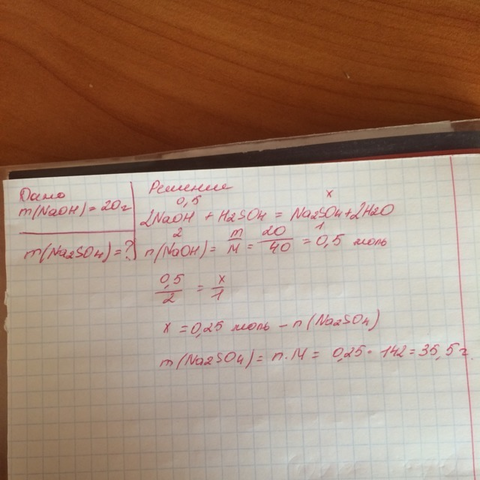 Дано
m(NaOH) = 20г
m(Na2SO4) = ?
Решение
0,5 x
2NaOH + H2SO4 = Na2SO4 + 2H2O
2 1
n(NaOH) = m/M = 20/40 = 0,5 моль
0,5/2 = x/1
x = 0,25 моль – n(Na2SO4)
m(Na2SO4) = n·M = 0,25·142 = 35,5г.